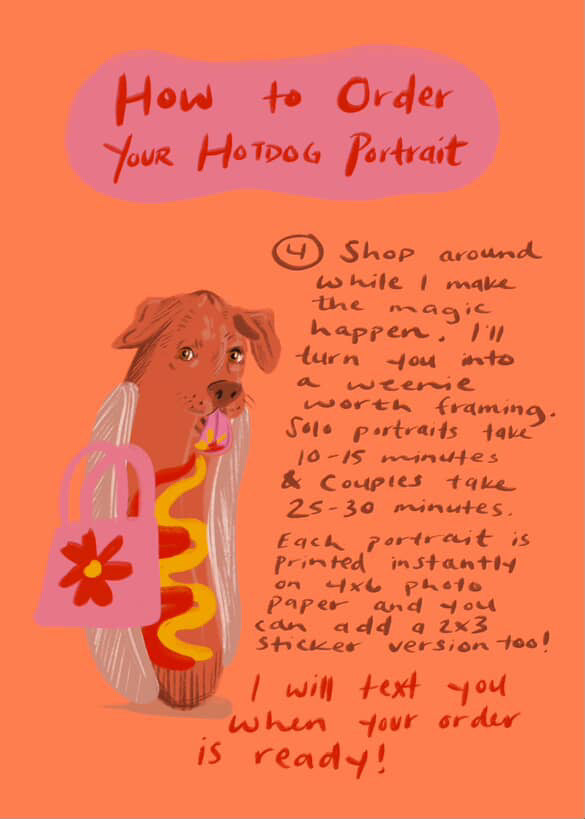 How to Order
Your HOTDOG Portrait
4 Shop around
while I make
the magic
happen. I'll
turn you into
a weenie
worth framing.
Solo portraits take
10-15 minutes
& Couples take
25-30 minutes.
Each portrait is
printed instantly
on 4x6 photo
paper and you
can add a 2x3
sticker version too!
I will text you
when your order
is ready!